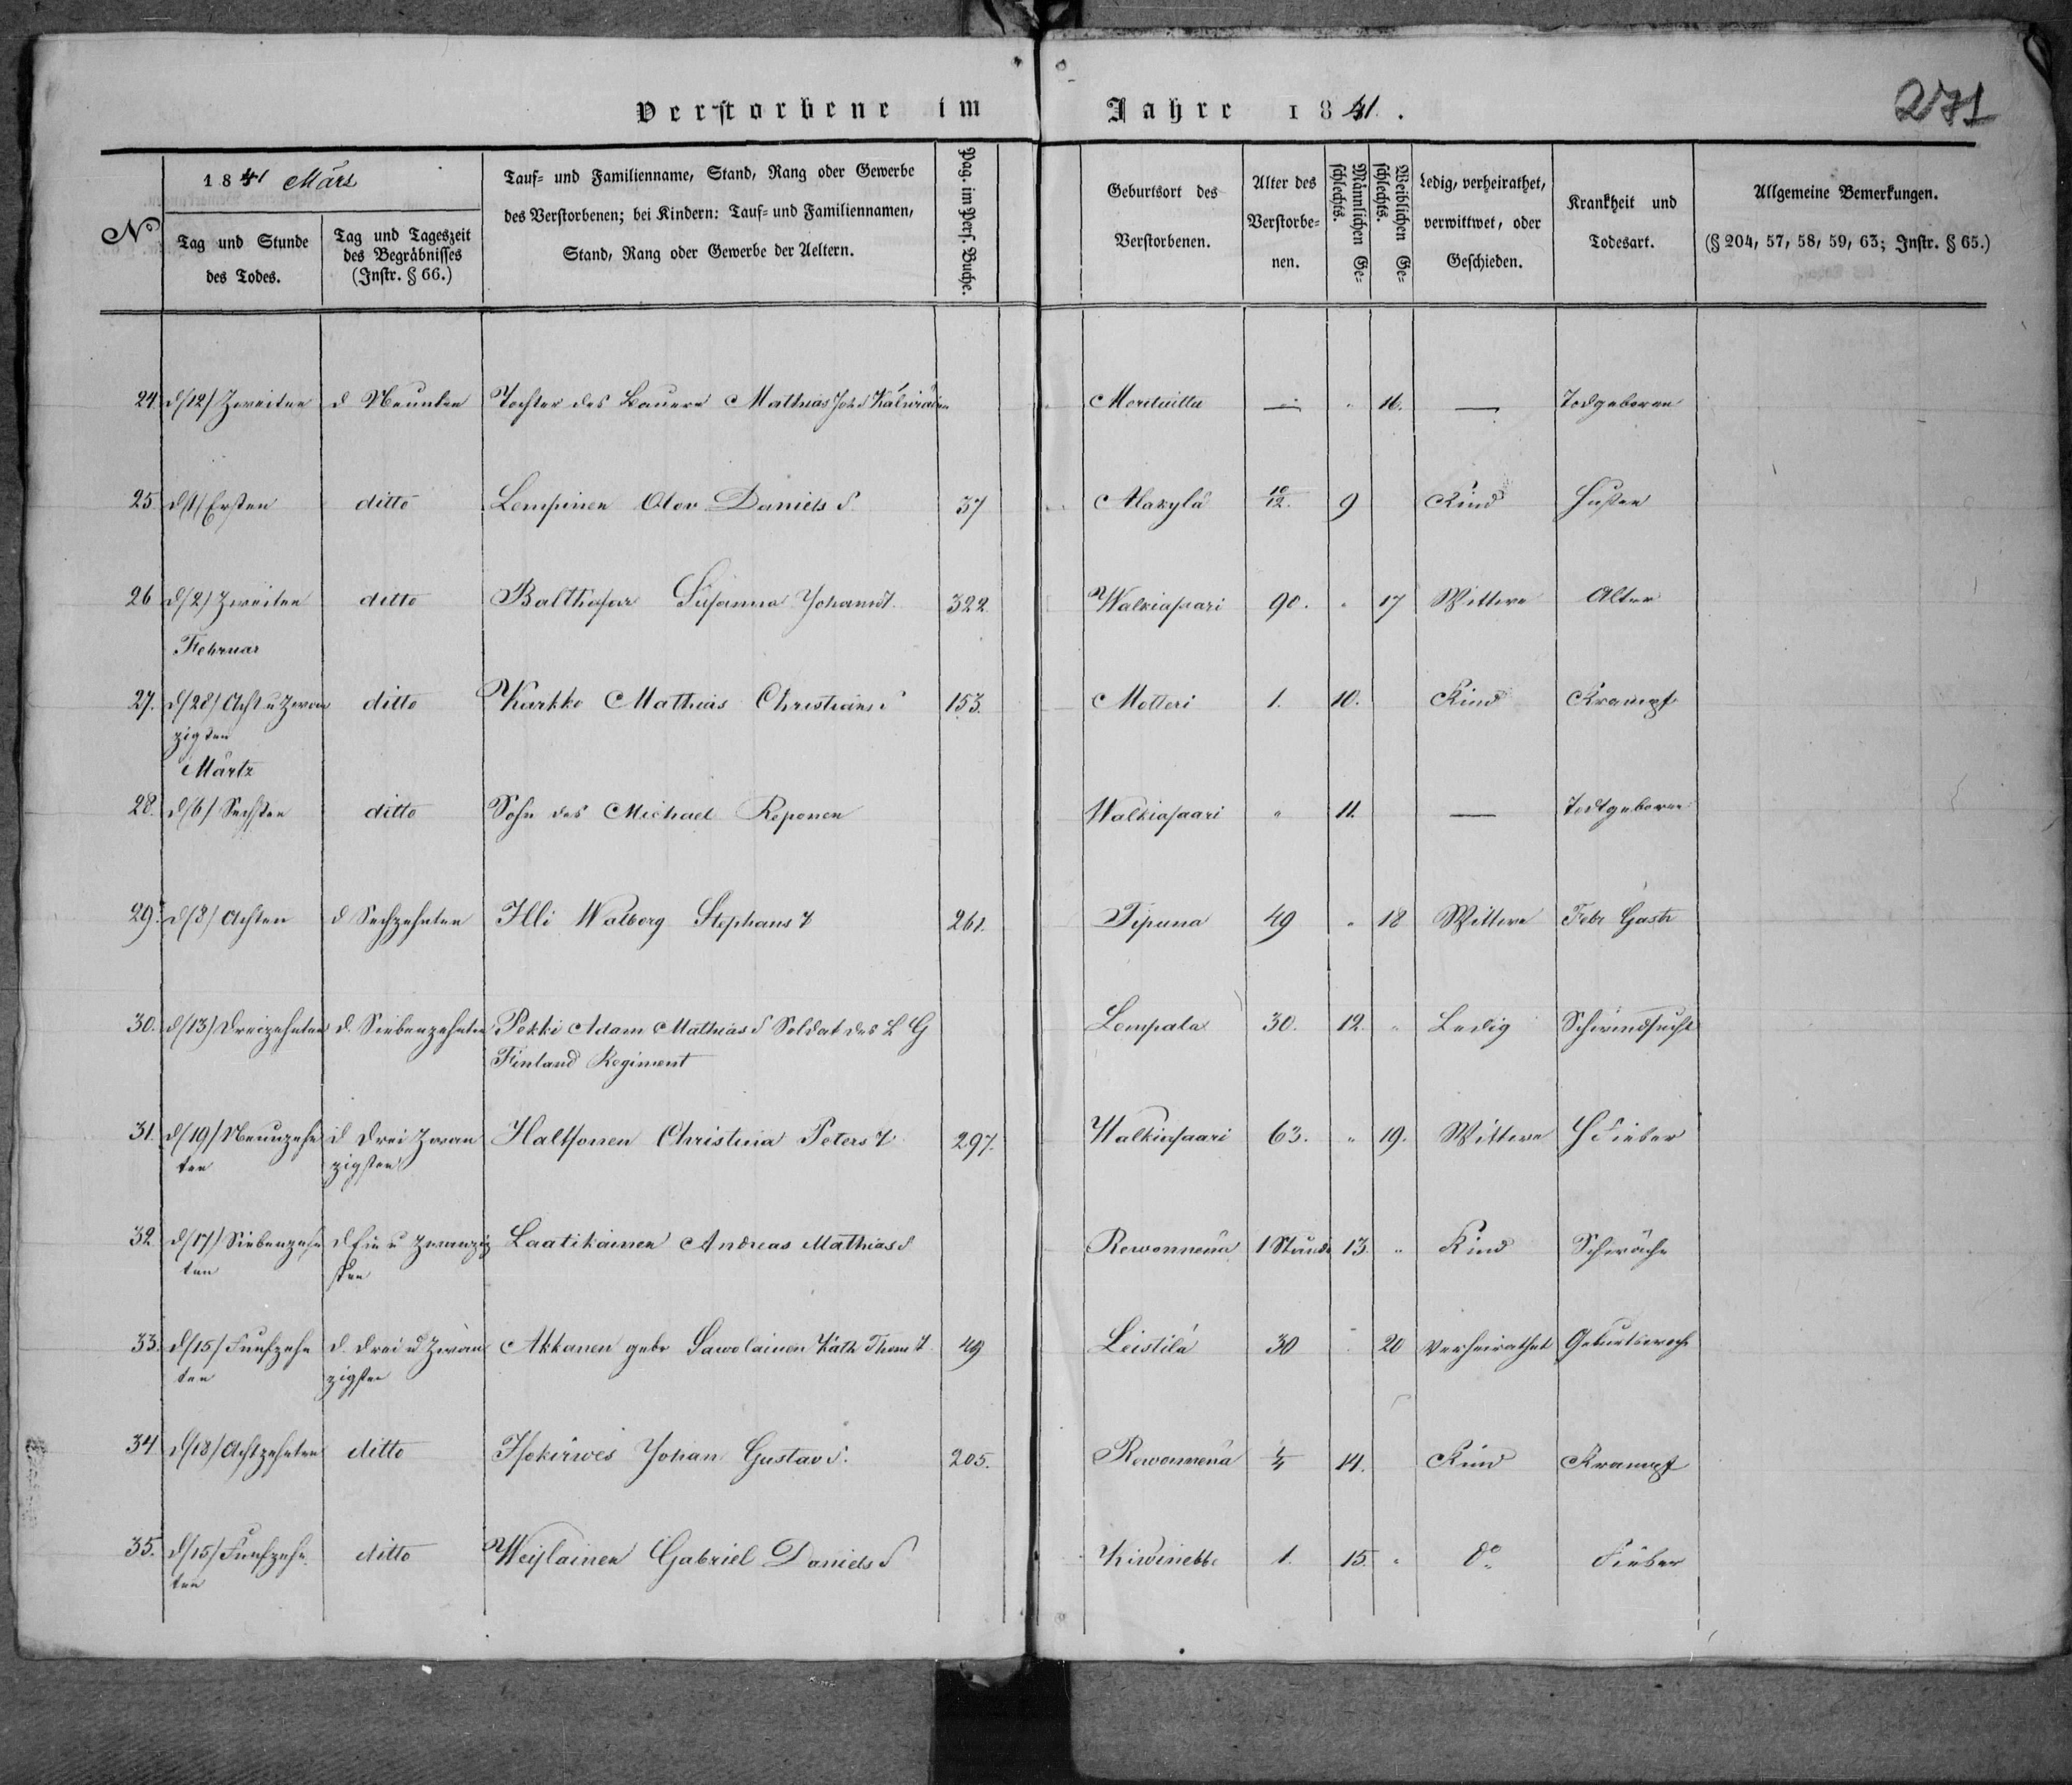 Verstorbene im Jahre 1841.
271
No
1841 März
Tag und Stunde
des Todes.
Tag und Tageszeit
des Begräbnisses
(Instr. § 66.)
Tauf= und Familienname, Stand, Rang oder Gewerbe
des Verstorbenen; bei Kindern: Tauf= und Familiennamen,
Stand, Rang oder Gewerbe der Aeltern.
Pag. im Pers. Buche.
Geburtsort des
Verstorbenen.
Alter des
Verstorbe=
nen.
Männlichen Ge=
schlechts.
Weiblichen Ge=
schlechts.
Ledig, verheirathet,
verwittwet, oder
Geschieden.
Krankheit und
Todesart.
Allgemeine Bemerkungen.
(§ 204, 57, 58, 59, 63; Instr. § 65.)
24. d/2/ Zweiten d Neunten Tochter des Bauern Mathias Joh. S — " 16. — Todgeboren
25 d/1/ Ersten ditto Lempinen Olov Daniels S 37 Alakylä 10/12. 9 Kind Husten
26 d/2/ Zweiten ditto Balthasar Susanna Johans T. 322. Walkiasaari 90. " 17 Wittwe Alter
Februar
27. d/28/ Acht u Zwan ditto Karkko Mathias Christians S 153. Motteri 1. 10. Kind Krampf
zigsten
Märtz
28. d/6/ Sechsten ditto Sohn des Michael Reponen Walkiasaari " 11. — Todtgeboren
29. d/8/ Achten d Sechzehnten Illi Walberg Stephans T 261. 49 " 18 Wittwe Febr Gastr
30. d/13/ Dreizehnten d. Siebenzehnten Pekki Adam Mathias S Soldat des L G Lempala 30. 12. " Ledig Schwindsucht
Finland Regiment
31. d/19/ Neunzehn d Drei Zwan Haltsonen Christina Peters T 297. Walkiasaari 63. " 19. Wittwe Fieber
ten zigsten
32 d/17/ Siebenzehn d Ein u Zwanzig Laatikainen Andreas Mathias S Rewonnenä 1 Stunde 13. " Kind Schwäche
ten sten
33. d/15/ Funfzehn d. Drei u Zwan Akkanen gebr Sawolainen Kath Thom T. 49 Leistilä 30 " 20 Verheirathet
ten zigsten
34 d/18/ Achtzehnten ditto Isokirwes Johan Gustav S. 205. Rewonnenä 1/4 14. Kind Krampf
35. d/15/ Funfzehn ditto Weijlainen Gabriel Daniels S 1. 15. " do Fieber
ten